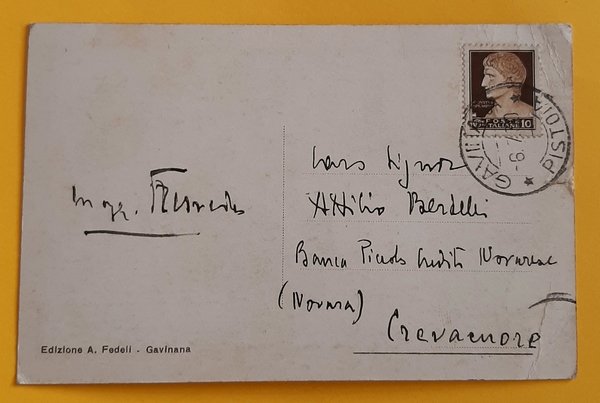 POSTE ITALIANE 10
GAVINANA PISTOIA
-6.7
Caro Signor
Attilio Bardelli
Banca Piccolo Credito Novarese
(Novara)
Crevacuore
Ing.
Edizione A. Fedeli - Gavinana